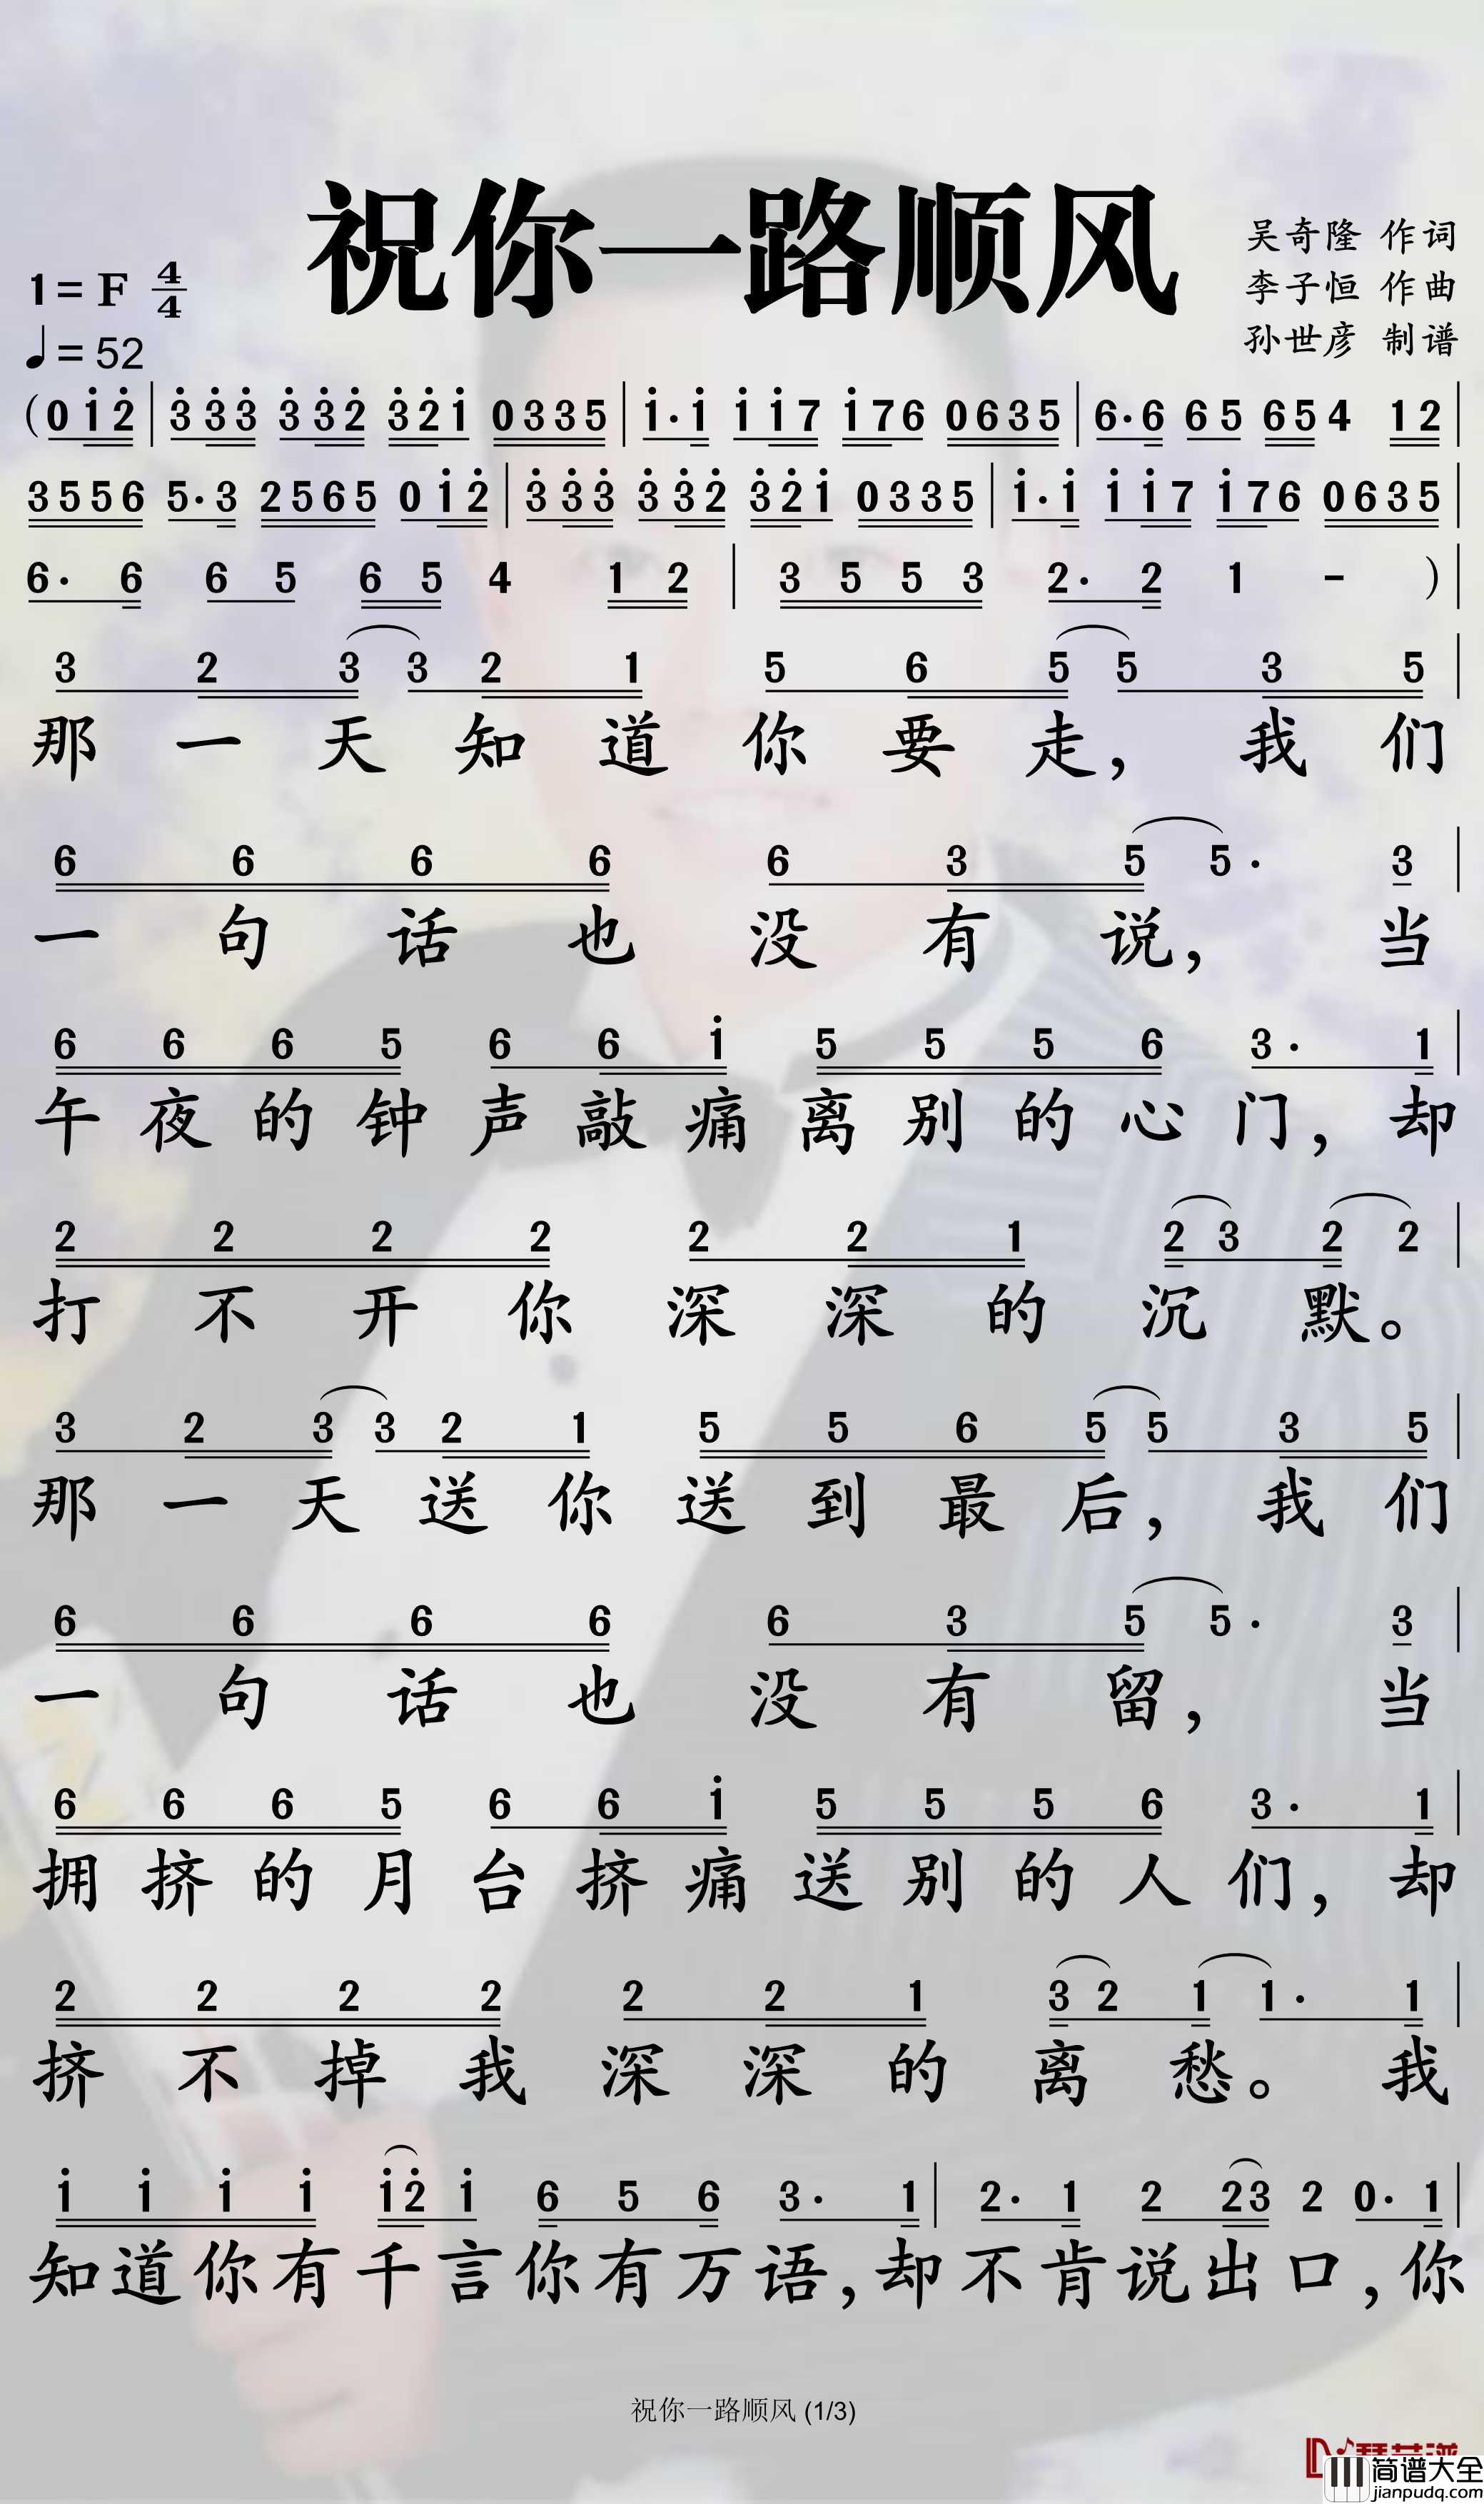 祝你一路顺风
吴奇隆 作词
李子恒 作曲
孙世彦 制谱
1=F 4/4
♩=52
(0 i̇ 2̇ | 3̇ 3̇ 3̇ 3̇ 3̇ 2̇ 3̇ 2̇ i̇ 0 3 3 5 | i̇· i̇ i̇ i̇ 7 i̇ 7 6 0 6 3 5 | 6· 6 6 5 6 5 4 1 2 |
3 5 5 6 5· 3 2 5 6 5 0 i̇ 2̇ | 3̇ 3̇ 3̇ 3̇ 3̇ 2̇ 3̇ 2̇ i̇ 0 3 3 5 | i̇· i̇ i̇ i̇ 7 i̇ 7 6 0 6 3 5 |
6· 6 6 5 6 5 4 1 2 | 3 5 5 3 2· 2 1 - ) |
3 2 3 3 2 1 5 6 5 5 3 5 |
那一天知道你要走，我们
6 6 6 6 6 3 5 5· 3 |
一句话也没有说，当
6 6 6 5 6 6 i̇ 5 5 5 6 3· 1 |
午夜的钟声敲痛离别的心门，却
2 2 2 2 2 2 1 2 3 2 2 |
打不开你深深的沉默。
3 2 3 3 2 1 5 5 6 5 5 3 5 |
那一天送你送到最后，我们
6 6 6 6 6 3 5 5· 3 |
一句话也没有留，当
6 6 6 5 6 6 i̇ 5 5 5 6 3· 1 |
拥挤的月台挤痛送别的人们，却
2 2 2 2 2 2 1 3 2 1 1· 1 |
挤不掉我深深的离愁。我
i̇ i̇ i̇ i̇ i̇ 2̇ i̇ 6 5 6 3· 1 | 2· 1 2 2 3 2 0· 1 |
知道你有千言你有万语，却不肯说出口，你
祝你一路顺风 (1/3)
简谱大全
jianpudq.com